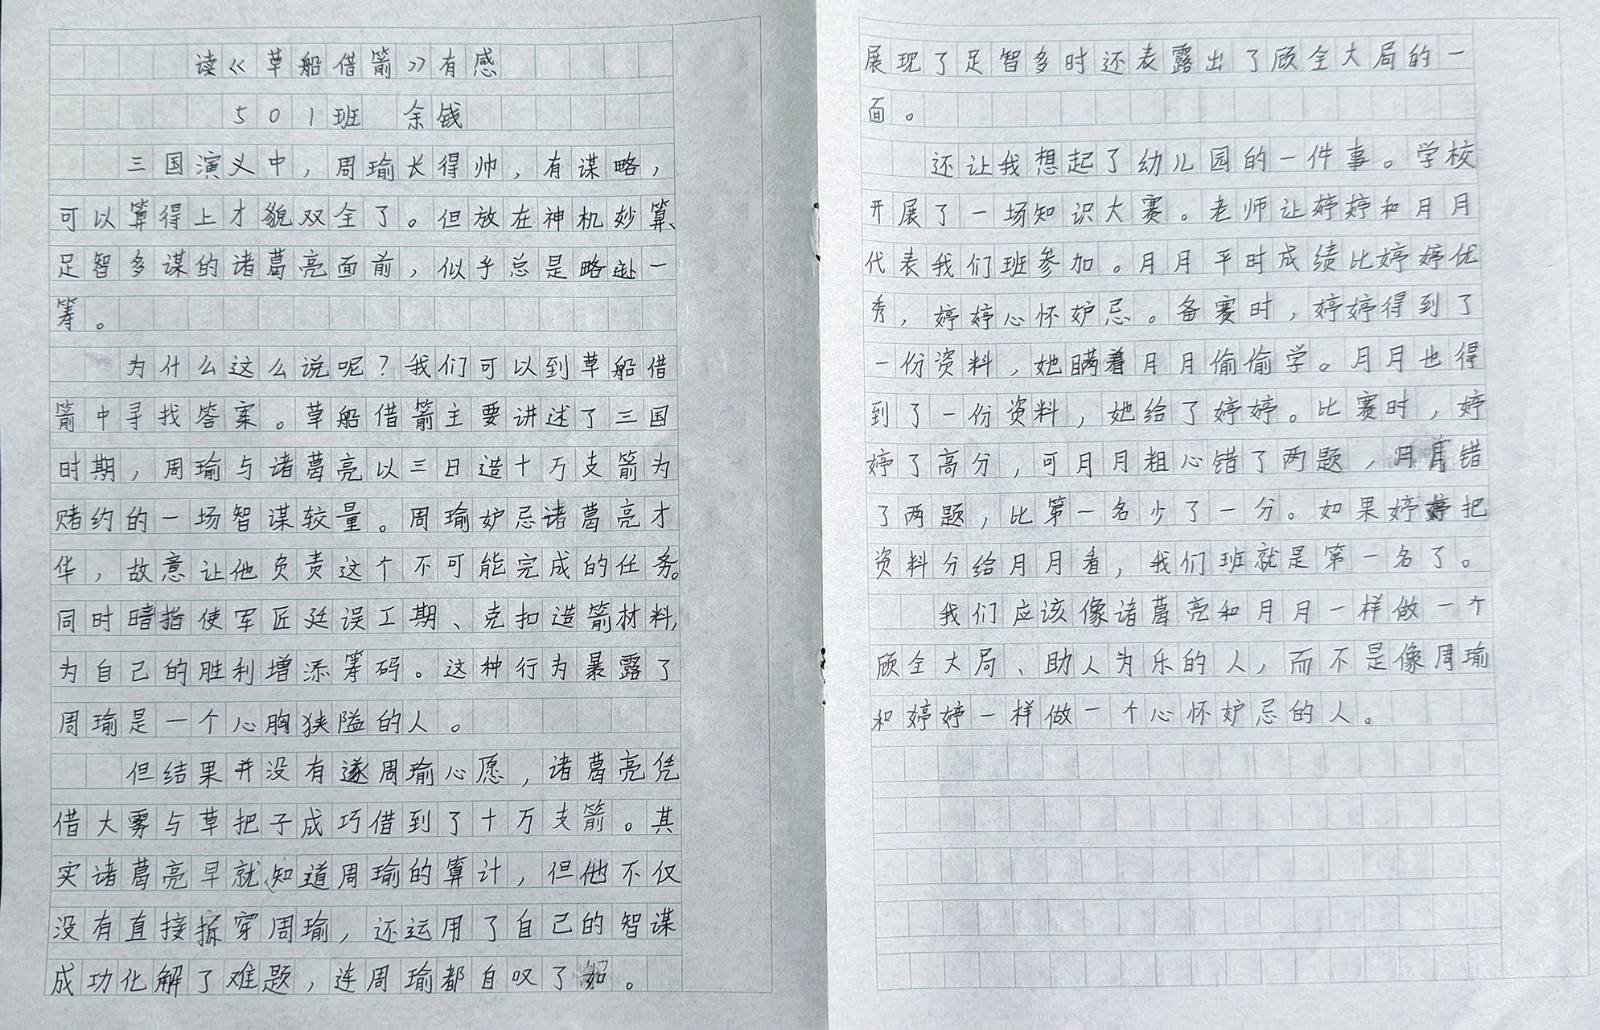 读《草船借箭》有感
501班 余钱
三国演义中，周瑜长得帅，有谋略，
可以算得上才貌双全了。但放在神机妙算、
足智多谋的诸葛亮面前，似乎总是略逊一
筹。
为什么这么说呢？我们可以到草船借
箭中寻找答案。草船借箭主要讲述了三国
时期，周瑜与诸葛亮以三日造十万支箭为
赌约的一场智谋较量。周瑜妒忌诸葛亮才
华，故意让他负责这个不可能完成的任务。
同时暗指使军匠廷误工期、克扣造箭材料，
为自己的胜利增添筹码。这种行为暴露了
周瑜是一个心胸狭隘的人。
但结果并没有遂周瑜心愿，诸葛亮凭
借大雾与草把子成巧借到了十万支箭。其
实诸葛亮早就知道周瑜的算计，但他不仅
没有直接拆穿周瑜，还运用了自己的智谋
成功化解了难题，连周瑜都自叹了如。
展现了足智多时还表露出了顾全大局的一
面。
还让我想起了幼儿园的一件事。学校
开展了一场知识大赛。老师让婷婷和月月
代表我们班参加。月月平时成绩比婷婷优
秀，婷婷心怀妒忌。备赛时，婷婷得到了
一份资料，她瞒着月月偷偷学。月月也得
到了一份资料，她给了婷婷。比赛时，婷
婷了高分，可月月粗心错了两题，月月错
了两题，比第一名少了一分。如果婷婷把
资料分给月月看，我们班就是第一名了。
我们应该像诸葛亮和月月一样做一个
顾全大局、助人为乐的人，而不是像周瑜
和婷婷一样做一个心怀妒忌的人。